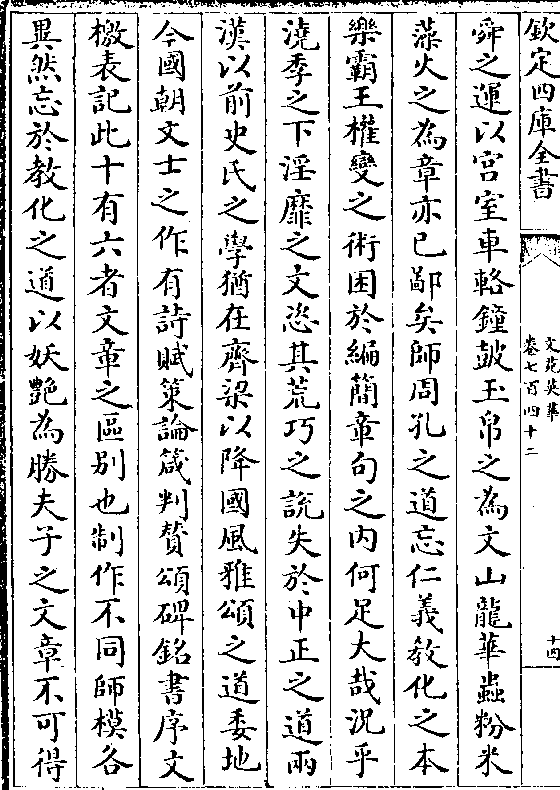 欽定四庫全書
文苑英華
卷七百四十二
十四
舜之運以宮室車輅鐘鼓玉帛之為文山龍華蟲粉米
藻火之為章亦已鄙矣師周孔之道忘仁義教化之本
樂霸王權變之術困於編簡章句之内何足大哉況乎
澆季之下淫靡之文恣其荒巧之説失於中正之道兩
漢以前史氏之學猶在齊梁以降國風雅頌之道委地
今國朝文士之作有詩賦策論箴判賛頌碑銘書序文
檄表記此十有六者文章之區别也制作不同師模各
異然忘於教化之道以妖艷為勝夫子之文章不可得